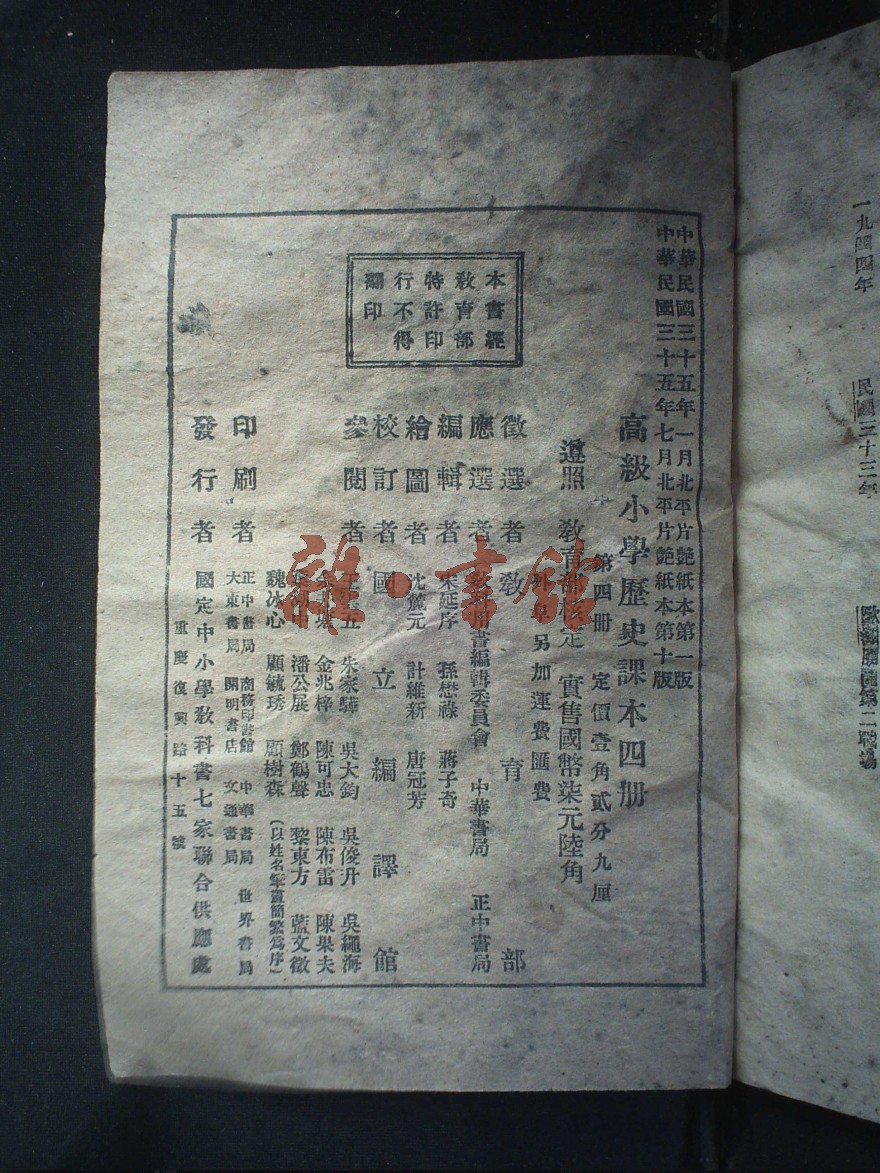 一九四四年
民國三十三年
中華民國三十五年一月北平片艷紙本第一版
中華民國三十五年七月北平片艷紙本第十版
高級小學歷史課本四册
第四册 定價壹角貳分九厘
遵照 教育部核定 實售國幣柒元陸角
另加運費匯費
本書經
教育部
特許印
行不得
翻印
徵選者 教育部
應選者 教科用書編輯委員會 中華書局 正中書局
編輯者 宋延序 孫懋祿 蔣子奇
繪圖者 沈麓元 計維新 唐冠芳
校訂者 國立編譯館
參閱者 朱家驊 吳大鈞 吳俊升 吳繩海
金兆梓 陳可忠 陳布雷 陳果夫
潘公展 鄭鶴聲 黎東方 藍文徵
魏冰心 顧毓琇 顧樹森 (以姓名筆畫簡繁爲序)
印刷者 正中書局 商務印書館 中華書局 世界書局
大東書局 開明書店 文通書局
發行者 國定中小學教科書七家聯合供應處
重慶復興路十五號
雜·書館